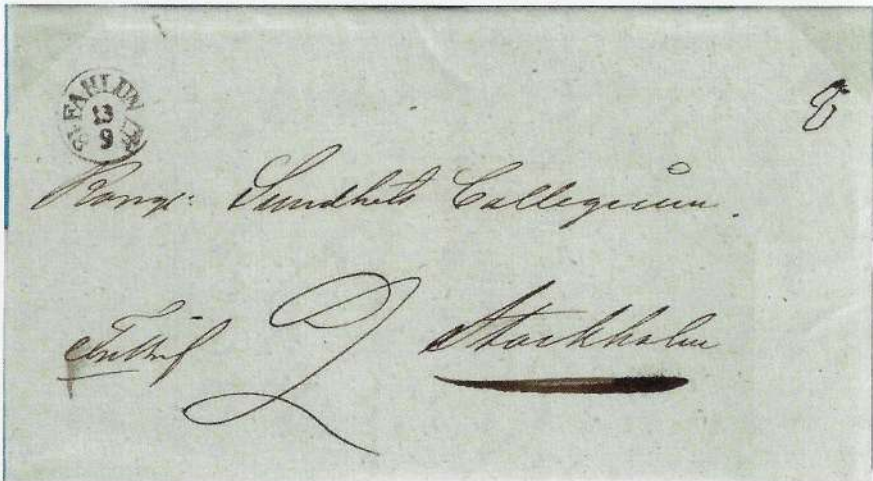 FAHLUN
13
9
Kongl: Sundhets Collegium.
2 Stockholm